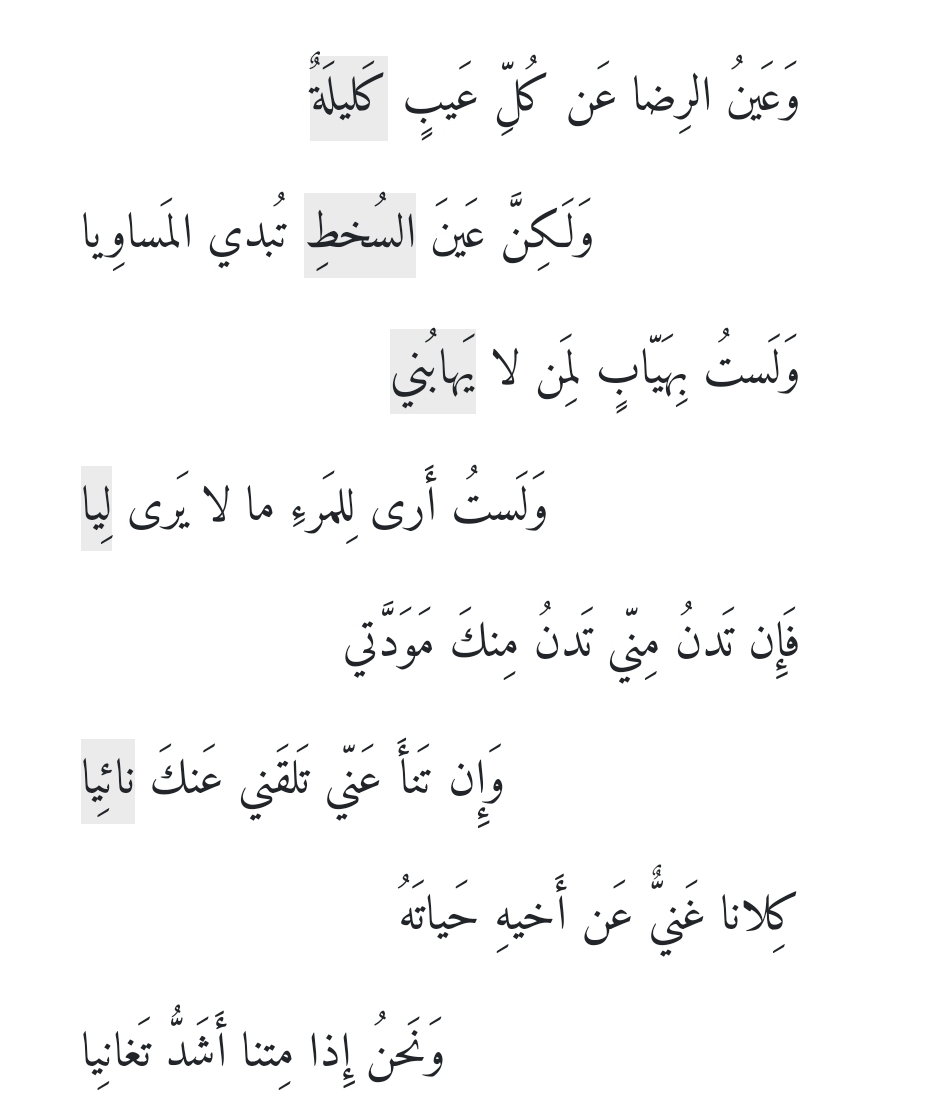 وَعَينُ الرِضا عَن كُلِّ عَيبٍ كَليلَةٌ
وَلَكِنَّ عَينَ السُخطِ تُبدي المَساوِيا
وَلَستُ بِهَيّابٍ لِمَن لا يَهابُني
وَلَستُ أَرى لِلمَرءِ ما لا يَرى لِيا
فَإِن تَدنُ مِنّي تَدنُ مِنكَ مَوَدَّتي
وَإِن تَنأَ عَنّي تَلقَني عَنكَ نائِيا
كِلانا غَنيٌّ عَن أَخيهِ حَياتَهُ
وَنَحنُ إِذا مِتنا أَشَدُّ تَغانِيا